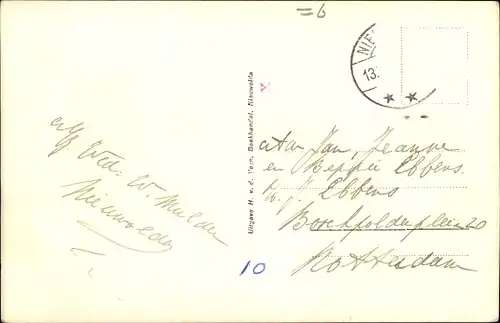 =6
NIE
13.
Uitgave H. v. d. Veen, Boekhandel, Nieuwolda
Afz. Wed. W. Mulder
Nieuwolda
Aan Jan, Jeanne
en Beppie Ebbens.
Ebbens
Boschpolderplein 20
Rotterdam
10